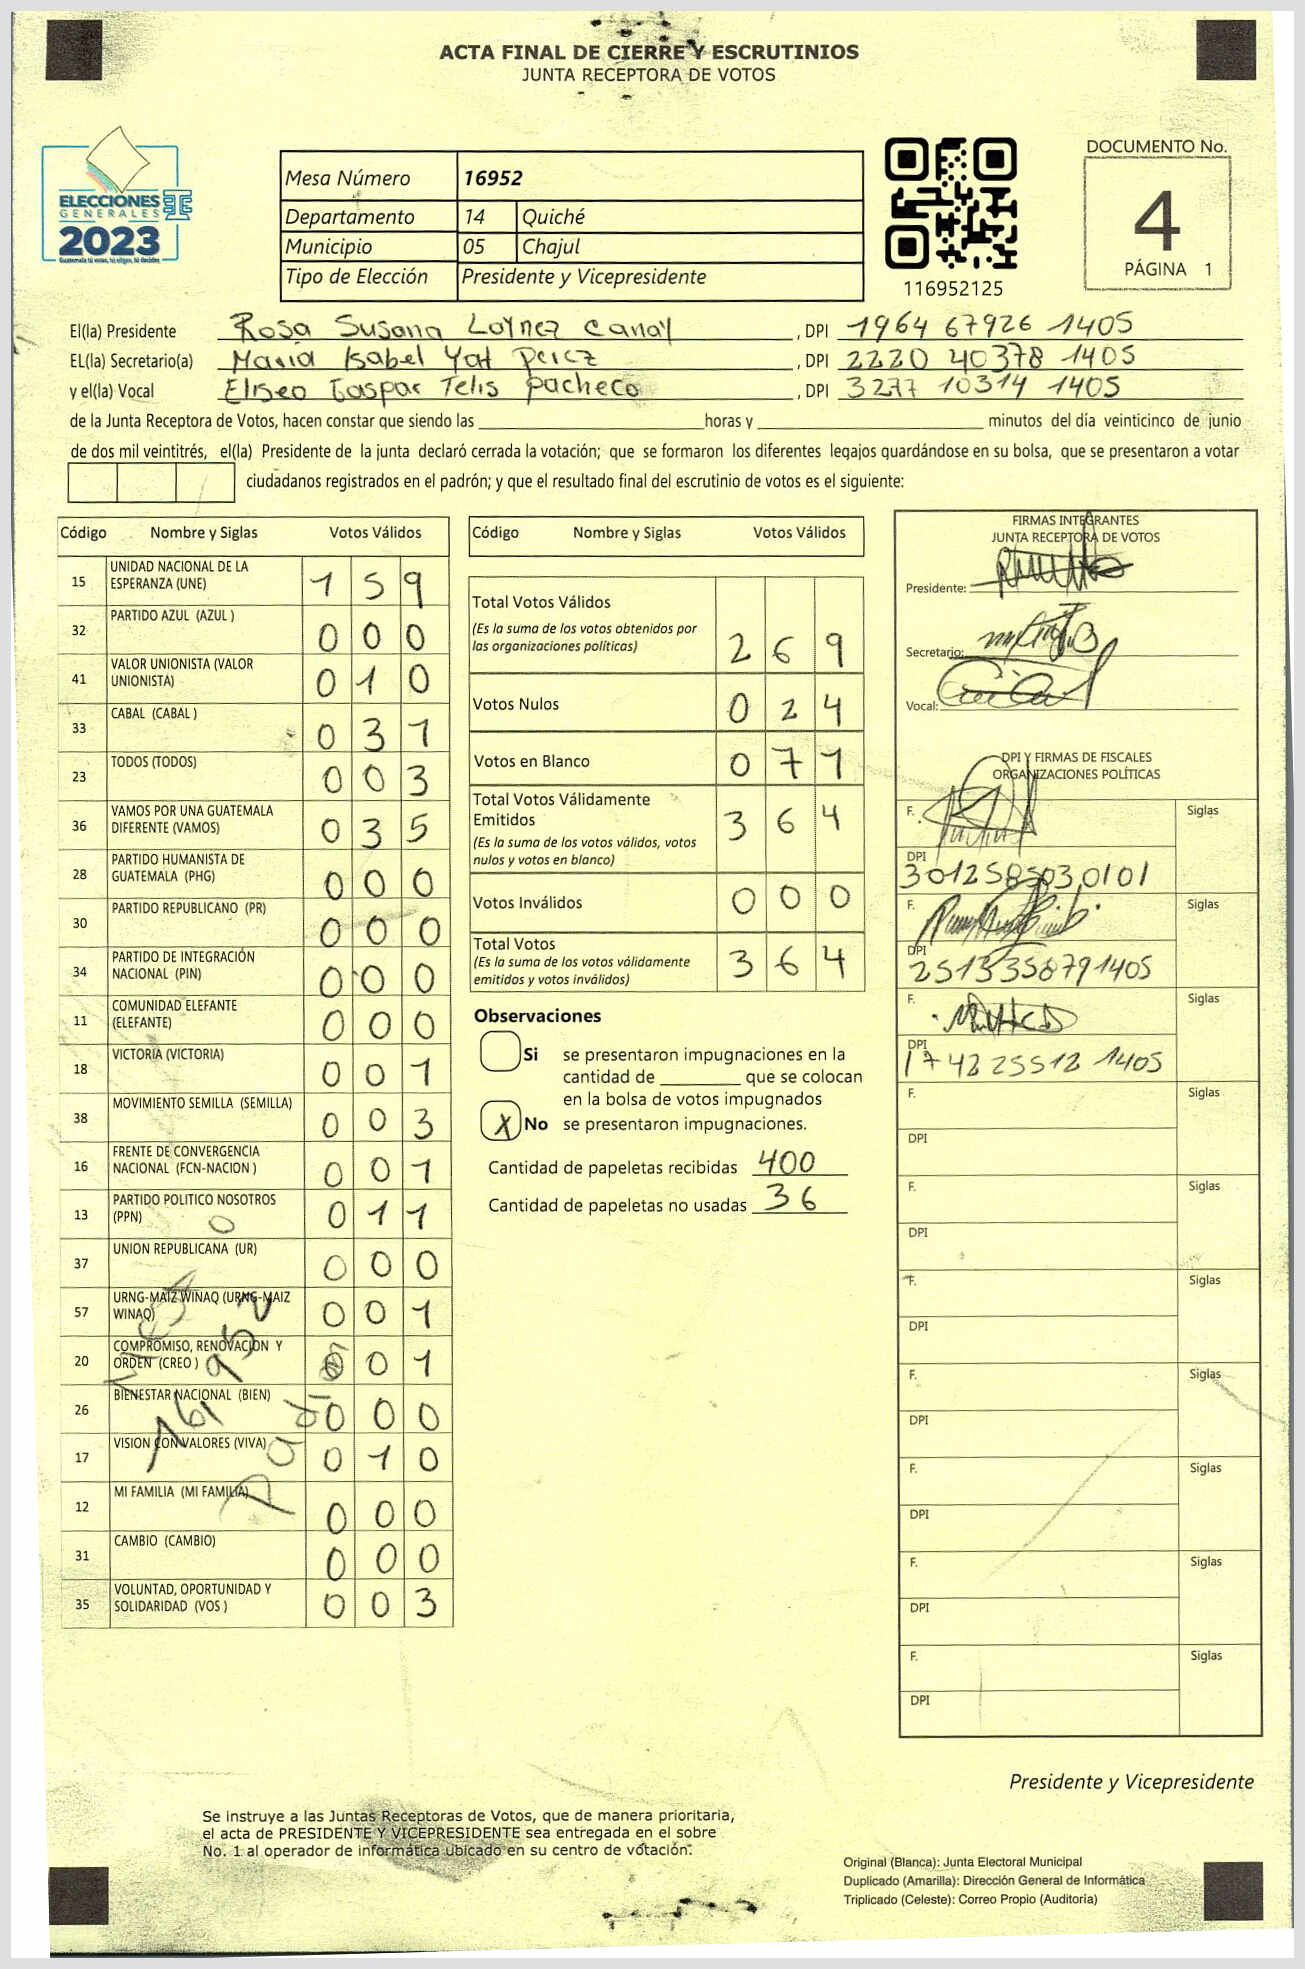 ACTA FINAL DE CIERRE Y ESCRUTINIOS
JUNTA RECEPTORA DE VOTOS
ELECCIONES
GENERALES
2023
Guatemala tú votas, tú eliges, tú decides
Mesa Número 16952
Departamento 14 Quiché
Municipio 05 Chajul
Tipo de Elección Presidente y Vicepresidente
116952125
DOCUMENTO No.
4
PÁGINA 1
El(la) Presidente Rosa Susana Laynez Canay, DPI 1964 67926 1405
EL(la) Secretario(a) Maria Isabel Yat Perez, DPI 2220 40378 1405
y el(la) Vocal Eliseo Gaspar Telis Pacheco, DPI 3277 10314 1405
de la Junta Receptora de Votos, hacen constar que siendo las horas y minutos del día veinticinco de junio
de dos mil veintitrés, el(la) Presidente de la junta declaró cerrada la votación; que se formaron los diferentes legajos guardándose en su bolsa, que se presentaron a votar
ciudadanos registrados en el padrón; y que el resultado final del escrutinio de votos es el siguiente:
Código Nombre y Siglas Votos Válidos
15 UNIDAD NACIONAL DE LA ESPERANZA (UNE) 159
32 PARTIDO AZUL (AZUL ) 000
41 VALOR UNIONISTA (VALOR UNIONISTA) 010
33 CABAL (CABAL ) 031
23 TODOS (TODOS) 003
36 VAMOS POR UNA GUATEMALA DIFERENTE (VAMOS) 035
28 PARTIDO HUMANISTA DE GUATEMALA (PHG) 000
30 PARTIDO REPUBLICANO (PR) 000
34 PARTIDO DE INTEGRACIÓN NACIONAL (PIN) 000
11 COMUNIDAD ELEFANTE (ELEFANTE) 000
18 VICTORIA (VICTORIA) 001
38 MOVIMIENTO SEMILLA (SEMILLA) 003
16 FRENTE DE CONVERGENCIA NACIONAL (FCN-NACION ) 001
13 PARTIDO POLITICO NOSOTROS (PPN) 011
37 UNION REPUBLICANA (UR) 000
57 URNG-MAIZ WINAQ (URNG-MAIZ WINAQ) 001
20 COMPROMISO, RENOVACION Y ORDEN (CREO ) 001
26 BIENESTAR NACIONAL (BIEN) 000
17 VISION CON VALORES (VIVA) 010
12 MI FAMILIA (MI FAMILIA) 000
31 CAMBIO (CAMBIO) 000
35 VOLUNTAD, OPORTUNIDAD Y SOLIDARIDAD (VOS ) 003
Mesa
16952
Código Nombre y Siglas Votos Válidos
Total Votos Válidos 269
(Es la suma de los votos obtenidos por
las organizaciones políticas)
Votos Nulos 024
Votos en Blanco 071
Total Votos Válidamente
Emitidos 364
(Es la suma de los votos válidos, votos
nulos y votos en blanco)
Votos Inválidos 000
Total Votos 364
(Es la suma de los votos válidamente
emitidos y votos inválidos)
Observaciones
Si se presentaron impugnaciones en la
cantidad de que se colocan
en la bolsa de votos impugnados
X No se presentaron impugnaciones.
Cantidad de papeletas recibidas 400
Cantidad de papeletas no usadas 36
FIRMAS INTEGRANTES
JUNTA RECEPTORA DE VOTOS
Presidente:
Secretario:
Vocal:
DPI Y FIRMAS DE FISCALES
ORGANIZACIONES POLÍTICAS
F. Siglas
DPI
3012585030101
F. Siglas
DPI
2513358791405
F. Siglas
DPI
1742255121405
F. Siglas
DPI
F. Siglas
DPI
F. Siglas
DPI
F. Siglas
DPI
F. Siglas
DPI
F. Siglas
DPI
F. Siglas
DPI
Presidente y Vicepresidente
Se instruye a las Juntas Receptoras de Votos, que de manera prioritaria,
el acta de PRESIDENTE Y VICEPRESIDENTE sea entregada en el sobre
No. 1 al operador de informática ubicado en su centro de votación.
Original (Blanca): Junta Electoral Municipal
Duplicado (Amarilla): Dirección General de Informática
Triplicado (Celeste): Correo Propio (Auditoría)